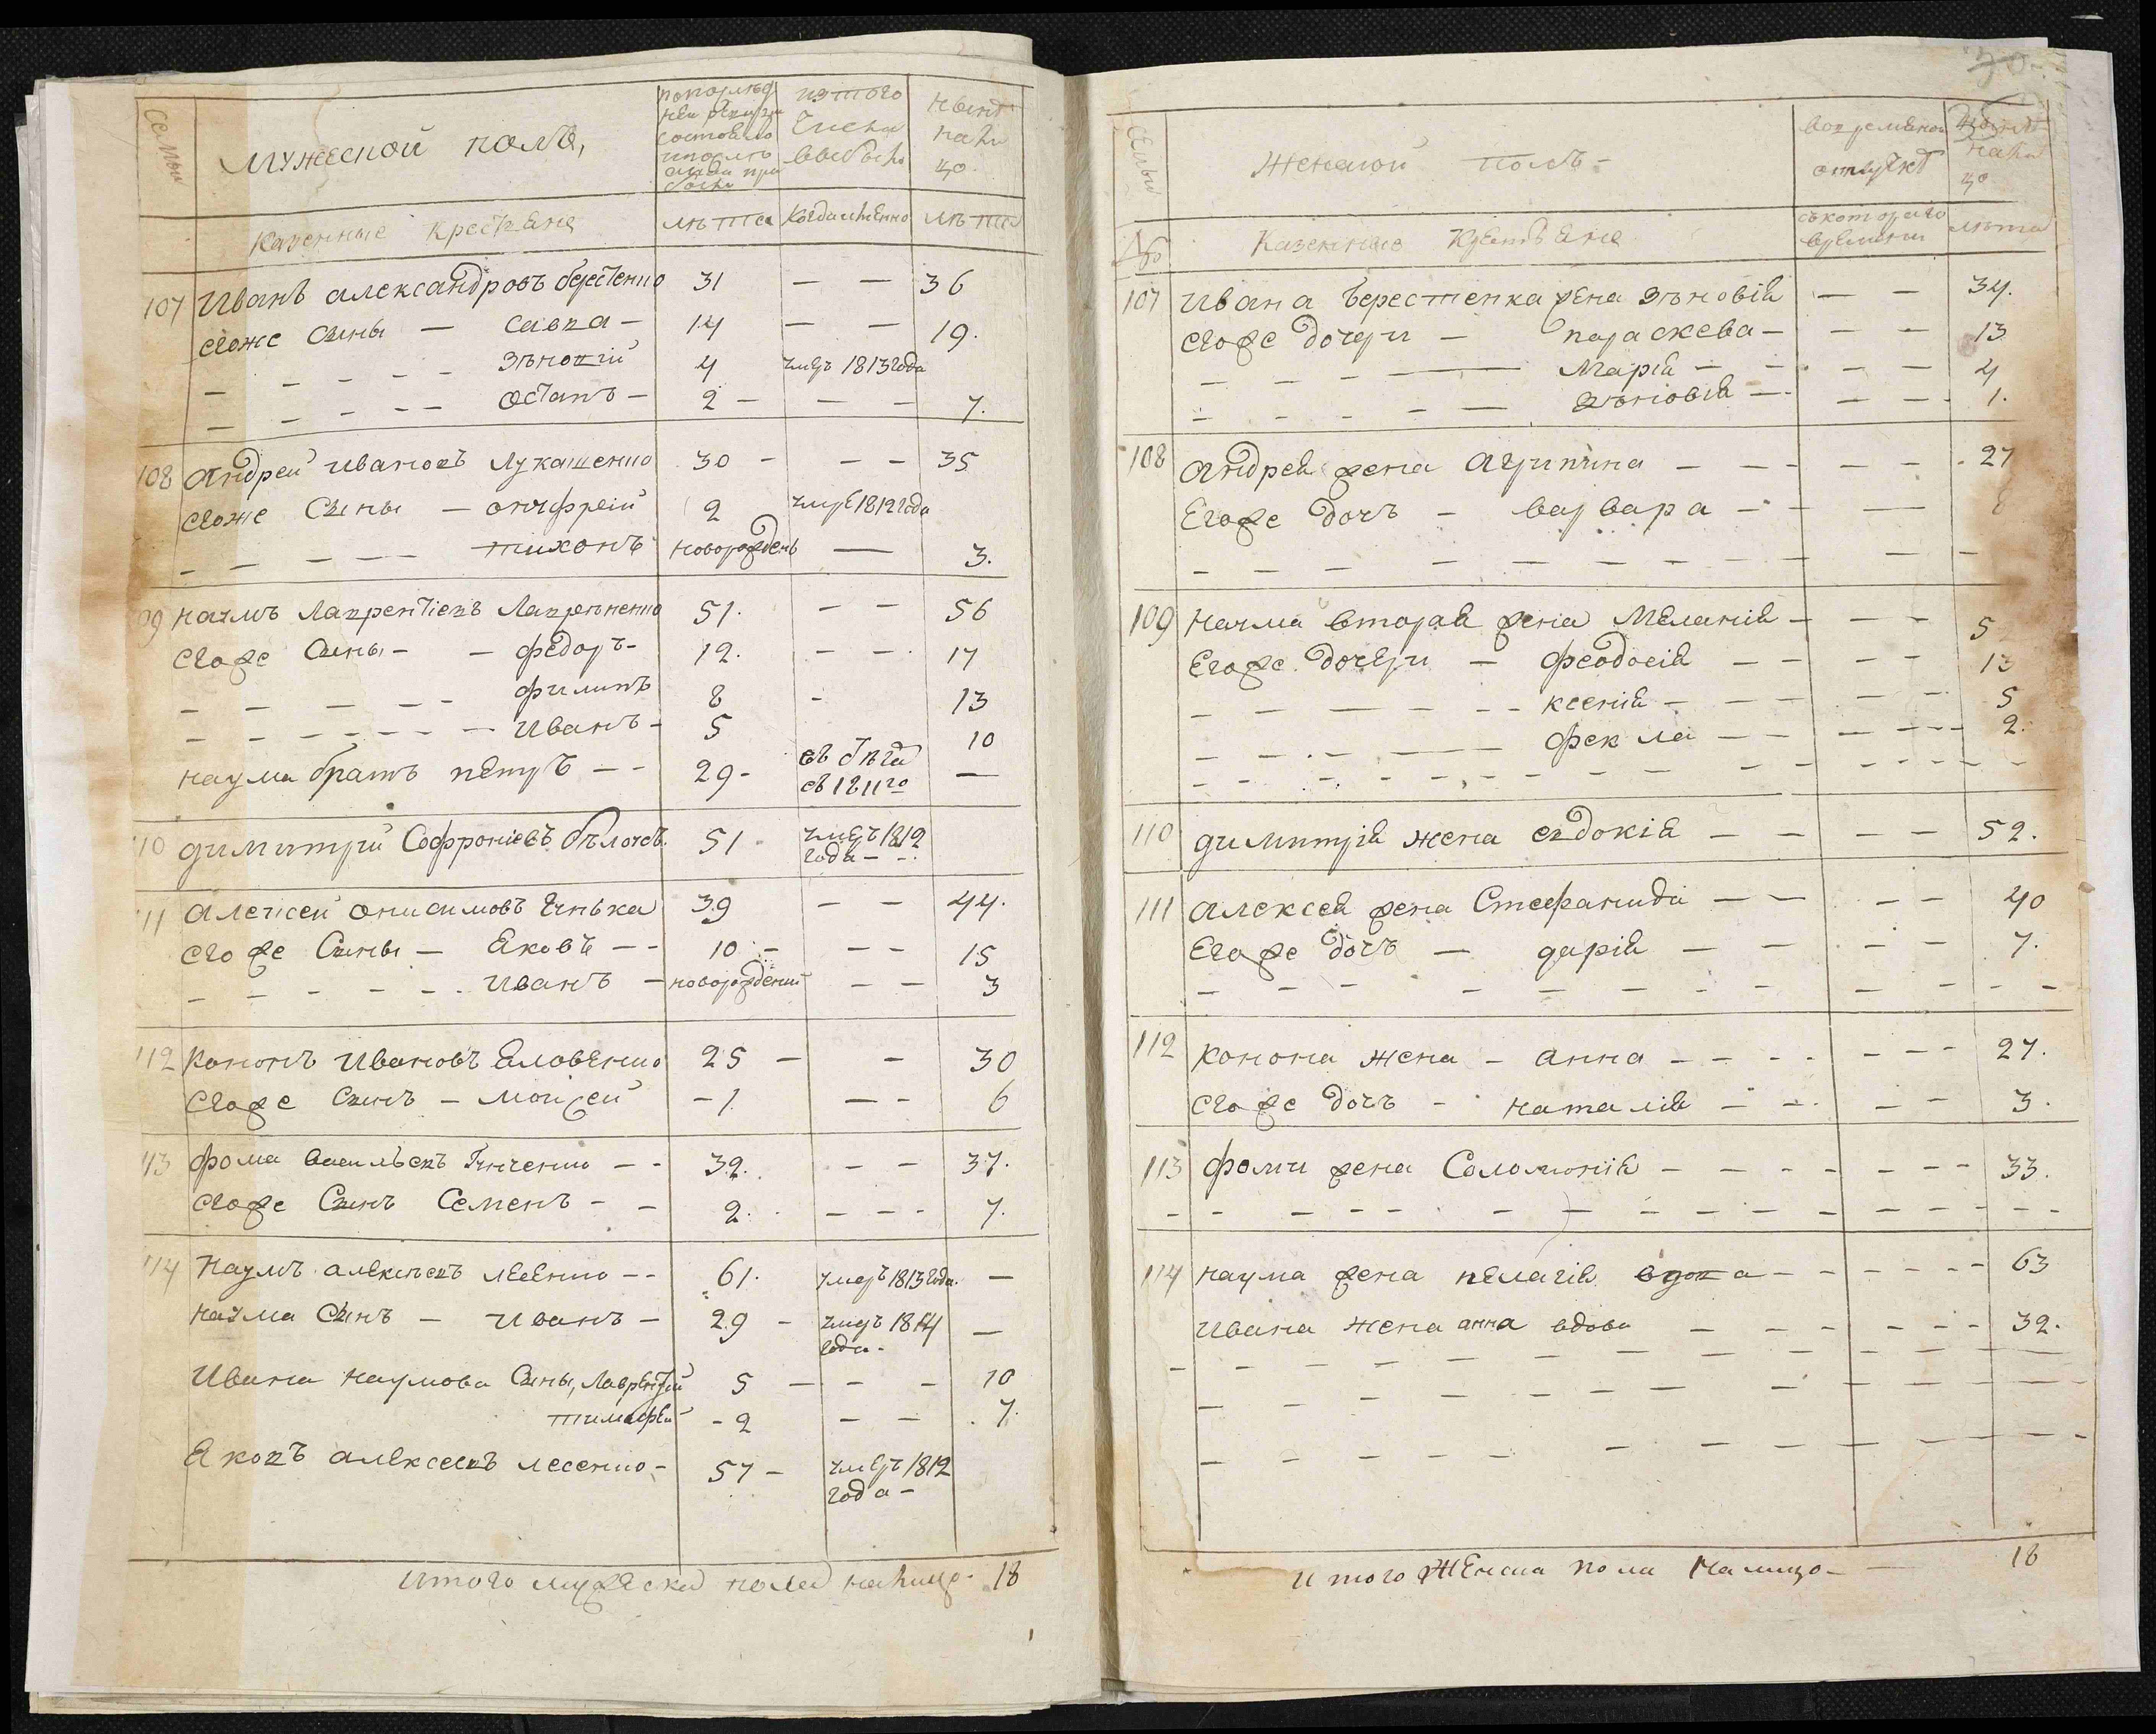 Семьи
Мужеской полъ,
по последней ревизии состояло и после онди прибыло
изтого числа выбыло
ныне налицо
Казенные крестяне
лѣта
когда именно
лѣта
107 Иванъ александровъ берестенко 31 — — 36
егоже сыны — савва — 14 — — 19.
— — — — — Зѣновий 4 умеръ 1813 года
— — — — — Остапъ — 2 — — — 7.
108 Андрей ивановъ Лукашенко 30 — — — 35
егоже сыны — онуфрий 2 умре 1812 года
— — — — — тихонъ новорожденъ — 3.
109 наумъ Лаврентiевъ Лаврененко 51. — — 56
егоже сыны — — федоръ — 12. — — 17
— — — — — филипъ 8 — 13
— — — — — — Иванъ — 5 10
наума братъ петръ — — 29 — въ бѣга съ 1811 го —
110 димитрий Софронiевъ бѣлочъ. 51 — умеръ 1812 года — —
111 Алексей онисимовъ 39 — — 44.
егоже сыны — Яковъ — — 10 — — — 15
— — — — — Иванъ — новорожденый — — 3
112 кононъ Ивановъ 25 — — 30
егоже сынъ — мойсей — 1. — — 6
113 фома васильевъ Гинченко — — 32. — — 37.
егоже сынъ Семенъ — — 2. — — — 7.
114 Наумъ алексѣевъ лесенко — — 61. умеръ 1813 года. —
наума сынъ — Иванъ — 29 — умеръ 1814 года. —
Ивана наумова сыны, Лаврентий 5 — — — 10
тимофей — 2 — — . 7.
Яковъ алексеевъ лесенко — 57 — умеръ 1812 года —
Итого мужеска пола налицо. 18
30
Семьи
№
Женской полъ —
вовременной отлучке
ныне налицо
Казенные крестьяне
съ котораго времени
лѣта
107 Ивана берестенка жена Зѣновiя — — 34.
егоже дочери — параскева — — — 13
— — — — Марiя — — — — 4
— — — — — зѣновiя — — — 1.
108 Андрея жена Агрипина — — — — — 27
Егоже дочъ — варвара — — — 8
— — — — — — — — — — —
109 наума вторая жена Меланiя — — — 5
Егоже дочери — феодосiя — — — — 13
— — — — — — ксенiя — — — — — 5
— — — — — фекла — — — — — 2.
— — — — — — — — — — — — —
110 димитрiя жена евдокiя — — — — 52.
111 Алексея жена Стефанида — — — — 40
Егоже дочъ — дарiя — — — — 7.
— — — — — — — — — — — —
112 Конона жена — анна — — — — — — — 27.
егоже дочъ — наталiя — — — — 3.
113 фомы жена Соломонiя — — — — — — — 33.
— — — — — — — — — — — — — — —
114 наума жена пелагiя вдова — — — — — — 63
Ивана жена анна вдова — — — — — — 32.
— — — — — — — — — — — —
— — — — — — — — — — — —
— — — — — — — — — — — —
итого Женска пола Налицо — — 18